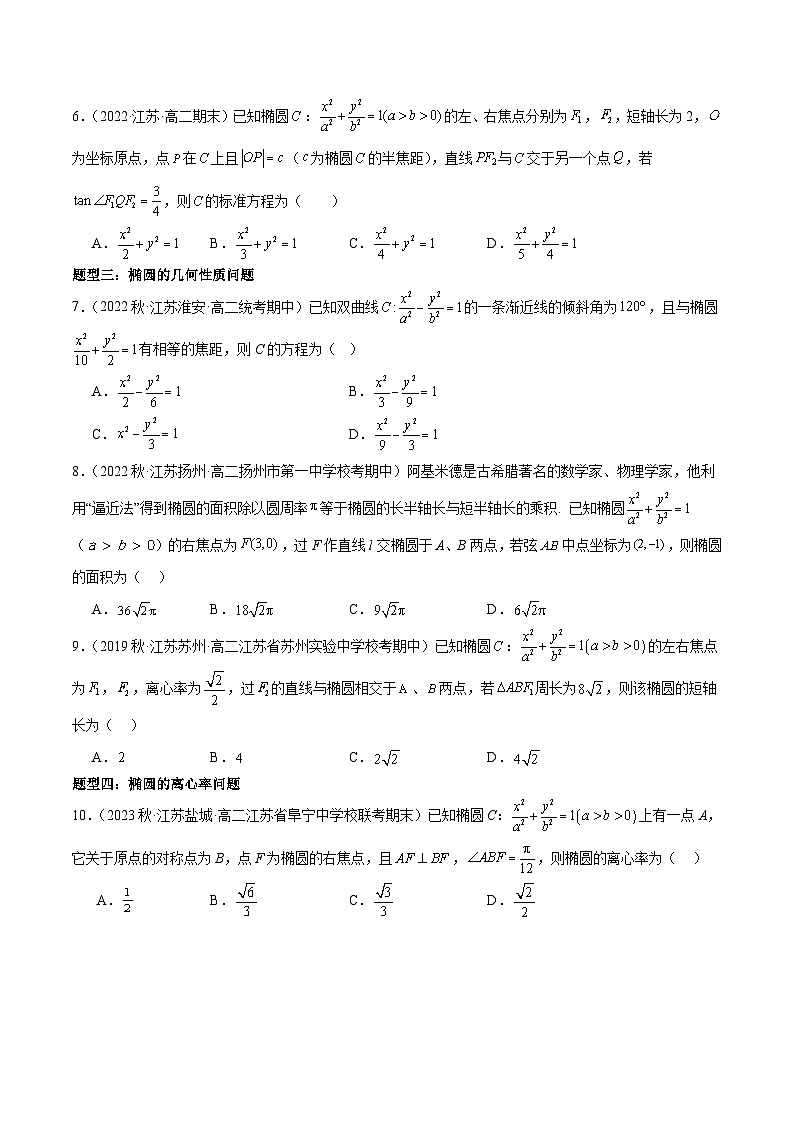 6.（2022·江苏·高二期末）已知椭圆C：x²/a²+y²/b²=1(a>b>0)的左、右焦点分别为F₁，F₂,短轴长为2，O
为坐标原点，点P在C上且|OP|=c（c为椭圆C的半焦距），直线PF₂与C交于另一个点Q,若
tan∠F₁QF₂=3/4,则C的标准方程为（　　）
A. x²/2+y²=1 B. x²/3+y²=1 C. x²/4+y²=1 D. x²/5+y²/4=1
题型三：椭圆的几何性质问题
7.（2022秋·江苏淮安·高二统考期中）已知双曲线C:x²/a²-y²/b²=1的一条渐近线的倾斜角为120°,且与椭圆
x²/10+y²/2=1有相等的焦距，则C的方程为（　）
A. x²/2-y²/6=1 B. x²/3-y²/9=1
C. x²-y²/3=1 D. x²/9-y²/3=1
8.（2022秋·江苏扬州·高二扬州市第一中学校考期中）阿基米德是古希腊著名的数学家、物理学家，他利
用“逼近法”得到椭圆的面积除以圆周率π等于椭圆的长半轴长与短半轴长的乘积. 已知椭圆x²/a²+y²/b²=1
（a>b>0）的右焦点为F(3,0),过F作直线l交椭圆于A、B两点，若弦AB中点坐标为(2,-1),则椭圆
的面积为（　）
A. 36√2π B. 18√2π C. 9√2π D. 6√2π
9.（2019秋·江苏苏州·高二江苏省苏州实验中学校考期中）已知椭圆C：x²/a²+y²/b²=1(a>b>0)的左右焦点
为F₁，F₂,离心率为√2/2,过F₂的直线与椭圆相交于A、B两点，若△ABF₁周长为8√2,则该椭圆的短轴
长为（　）
A. 2 B. 4 C. 2√2 D. 4√2
题型四：椭圆的离心率问题
10.（2023秋·江苏盐城·高二江苏省阜宁中学校联考期末）已知椭圆C：x²/a²+y²/b²=1(a>b>0)上有一点A，
它关于原点的对称点为B，点F为椭圆的右焦点，且AF⊥BF，∠ABF=π/12,则椭圆的离心率为（　）
A. 1/2 B. √6/3 C. √3/3 D. √2/2